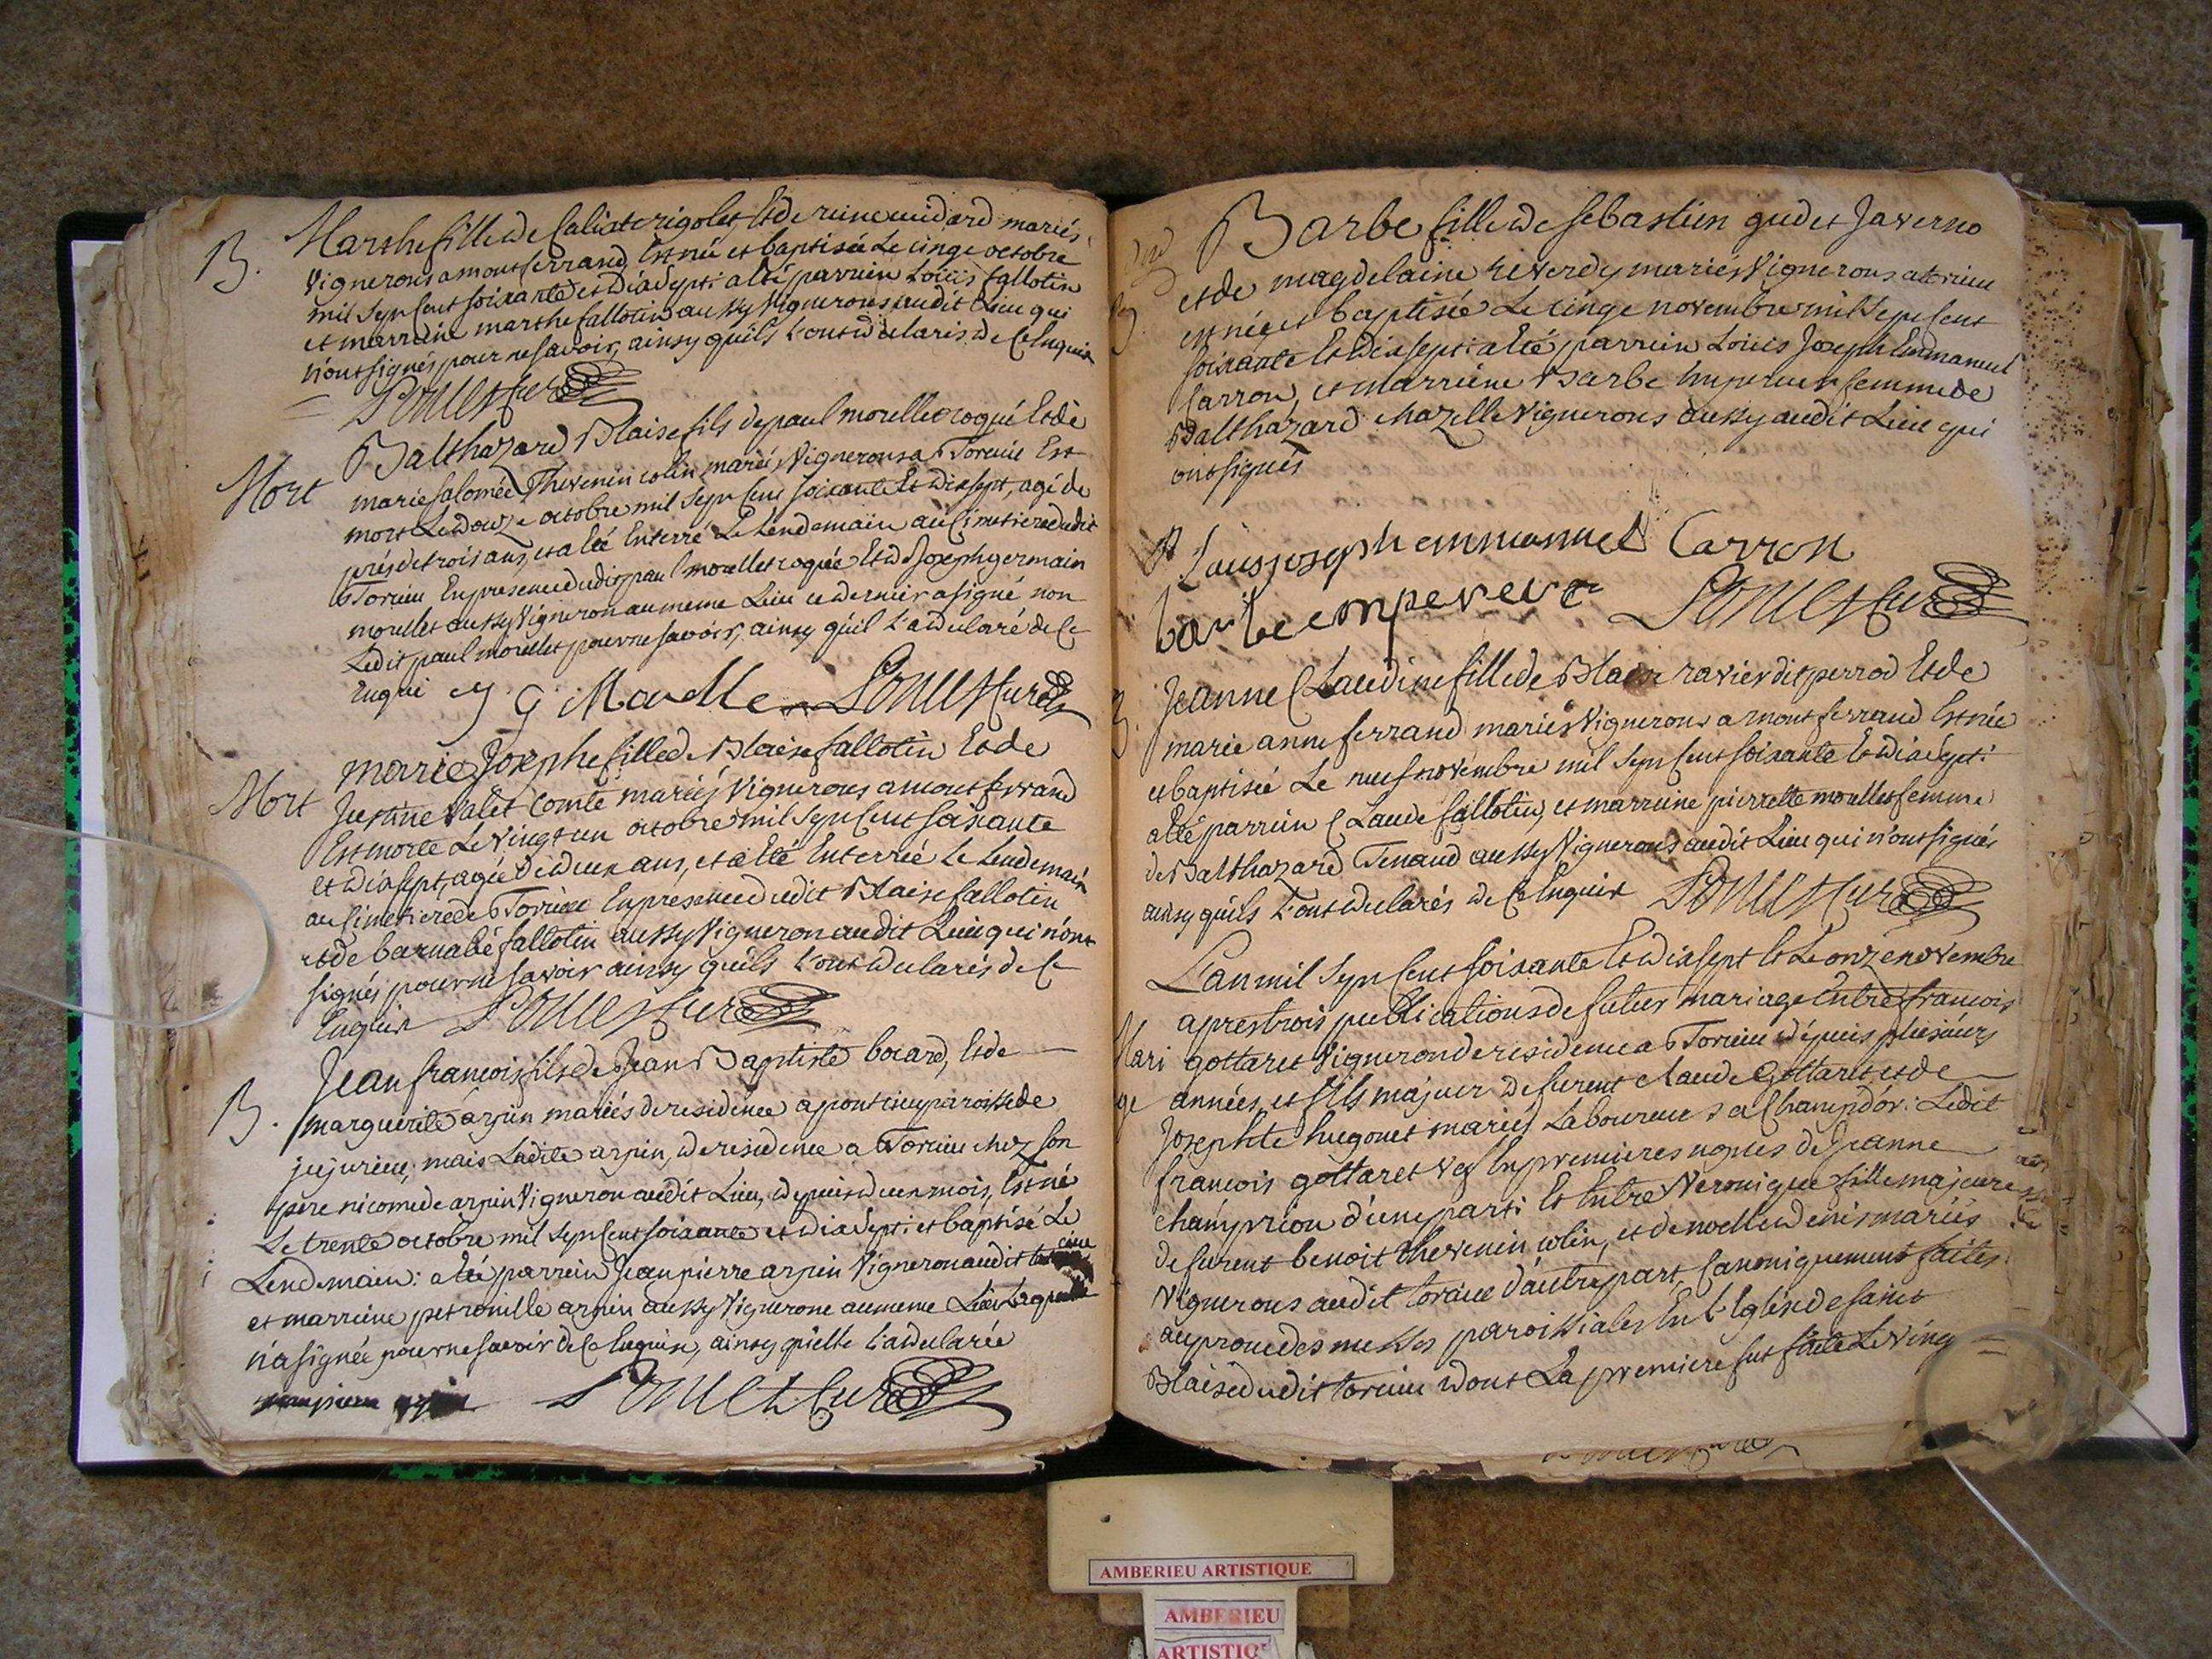 B. Marthe fille de Calixte rigolet, Et de reine medard mariés
Vignerons a montferrand, Est née et baptisée Le cinqe octobre
mil Sept Cent soixante et dix sept: a eté parrein Loüis fallotin
et marreine marthe fallotin aussy Vignerons audit Lieu qui
n'ont signés pour ne savoir, ainsy quils L'ont déclarés de Ce Enquis
Curé
Mort Balthazard Blaise fils de paul morellet roqué Et de
marie Salomée Thevenin colin mariés Vignerons a Torcieu Est
mort Le douze octobre mil Sept Cent soixante Et dix sept, agé de
près de trois ans, et a Eté Enterré Le Lendemain au Cimetiere dudit
Torcieu En presence dudit paul morellet roqué Et de Joseph germain
morellet aussy Vigneron au meme Lieu ce dernier a signé non
Ledit paul morellet pour ne savoir, ainsy quil L'a déclaré de Ce
Enqui j G Morelle Curé
Mort marie Josephe fille de Blaise fallotin Et de
Justine Valet Comte mariés Vignerons a montferrand
Est morte Le Vingt un octobre mil Sept Cent soixante
et dix sept, agée de deux ans, et a Eté Enterrée Le Lendemain
au Cimetiere de Torcieu En presence dudit Blaise fallotin
et de barnabé fallotin aussy Vigneron audit Lieu qui n'ont
signés pour ne savoir ainsy quils L'ont déclarés de Ce
Enquis Curé
B. Jean francois fils de Jean Baptiste bocard, Et de
marguerite arpin mariés de residence a pontcin paroisse de
jujurieu, mais Ladite arpin, de residence a Torcieu chez son
pere nicomede arpin Vigneron audit Lieu, depuis deux mois, Est né
Le trente octobre mil Sept Cent soixante et dix sept: et baptisé Le
Lendemain: a eté parrein Jean pierre arpin Vigneron audit
et marreine petronille arpin aussy Vignerone au meme Lieu Laquelle
n'a signée pour ne savoir de Ce Enquise, ainsy quelle L'a déclarée
Curé
Barbe fille de Sebastien gudet Javerno
et de magdelaine reverdy mariés Vignerons a torcieu
est née et baptisée Le cinqe novembre mil Sept Cent
soixante Et dix sept: a Eté parrein Loüis Joseph Emmanuel
Carron, et marreine Barbe Empereur femme de
Balthazard chazelle Vignerons aussy audit Lieu qui
ont signés
Louis joseph emmanuel Carron
barbe empereur Curé
B. Jeanne Claudine fille de Blaise ravier dit perrod Et de
marie anne ferrand mariés Vignerons a montferrand Est née
et baptisée Le neuf novembre mil Sept Cent soixante Et dix sept:
a Eté parrein Claude fallotin, et marreine pierrette morellet femme
de Balthazard Tenaud aussy Vignerons audit Lieu qui n'ont signés
ainsy quils L'ont déclarés de Ce Enquis Curé
L'an mil Sept Cent soixante Et dix sept Et Le onze novembre
apres trois publications de futur mariage Entre francois
Mari gottaret Vigneron de residence a Torcieu depuis plusieurs
ge années, et fils majeur de furent Claude Gottaret et de
Josephte hugonet mariés Laboureurs a Champdor: Ledit
francois gottaret Vef En premieres nopces de Jeanne
champrion d'une part: Et Entre Veronique fille majeure
de furent benoit thevenin colin, et de noelle denis mariés
Vignerons audit torcieu d'autre part, Canoniquement faites
au prone des messes paroissiales En L'Eglise de saint
Blaise dudit torcieu dont La premiere fut faite Le Ving
AMBERIEU ARTISTIQUE
AMBERIEU
ARTISTIQ